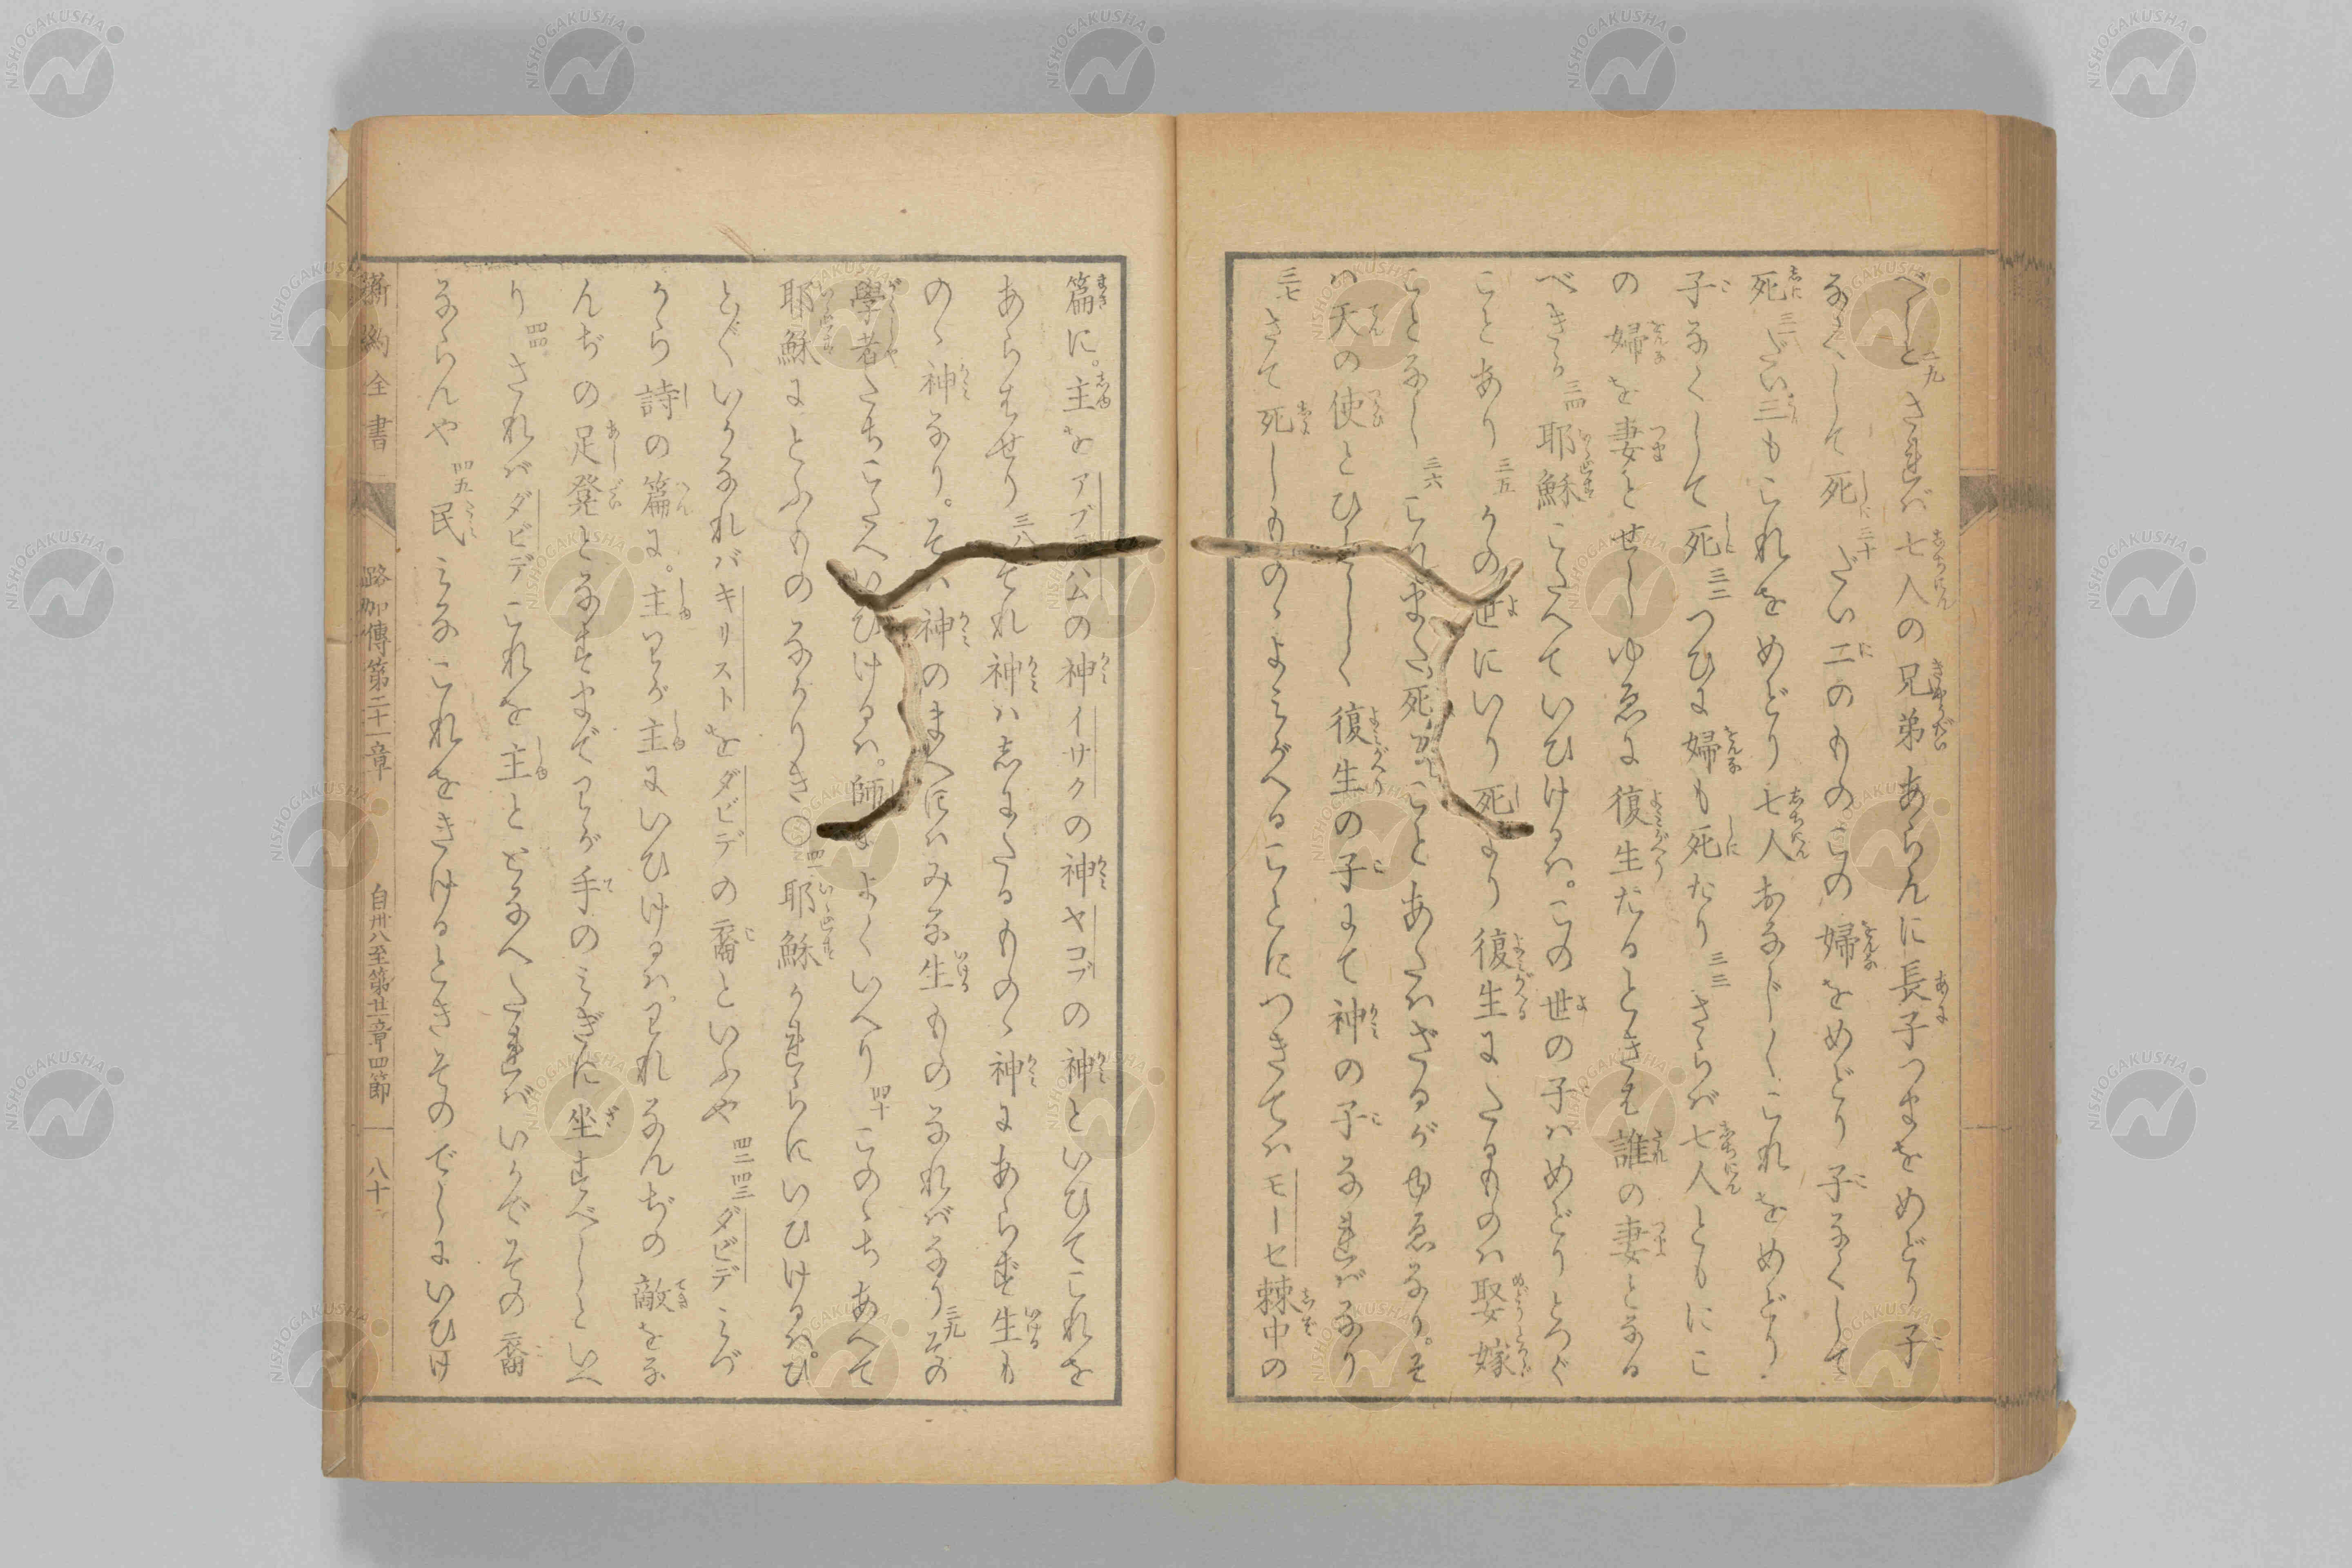 べしと 二九 されバ七人の兄弟あらんに長子つまをめどり子
なくして死 三十 だい二のものこの婦をめどり子なくして
死 三一 だい三もこれをめどり七人おなじくこれをめどり
子なくして死 三二 つひに婦も死たり 三三 さらバ七人ともにこ
の婦を妻とせしゆゑに復生たるときは誰の妻となる
べきか 三四 耶穌こたへていひけるハ。この世の子ハめどりとつぐ
ことあり 三五 かの世にいり死より復生にたるものハ娶嫁
ことなし 三六 これまた死ることあたハざるがゆゑなり。そ
ハ天の使とひとしく復生の子にて神の子なれバなり
三七 さて死しものゝよみがへることにつきてハモーセ棘中の
篇に。主をアブラハムの神イサクの神ヤコブの神といひてこれを
あらはせり 三八 それ神ハ志にたるものゝ神にあらず生も
のゝ神なり。そハ神のまへにハみな生ものなれバなり 三九 その
學者たちこたへいひけるハ。師よよくいへり 四十 このゝちあへて
耶穌にとふものなかりき 四一 耶穌かれらにいひけるハ。ひ
とびといかなれバキリストをダビデの裔といふや 四二 四三 ダビデみづ
から詩の篇に。主わが主にいひけるハ。われなんぢの敵をな
んぢの足凳となすまでわが手のみぎに坐すべしといへ
り 四四 されバダビデこれを主ととなへたれバいかでその裔
ならんや 四五 民みなこれをきけるときそのでしにいひけ
新約全書 路加傳第二十一章 自卅八至第廿一章四節 八十
NISHOGAKUSHA